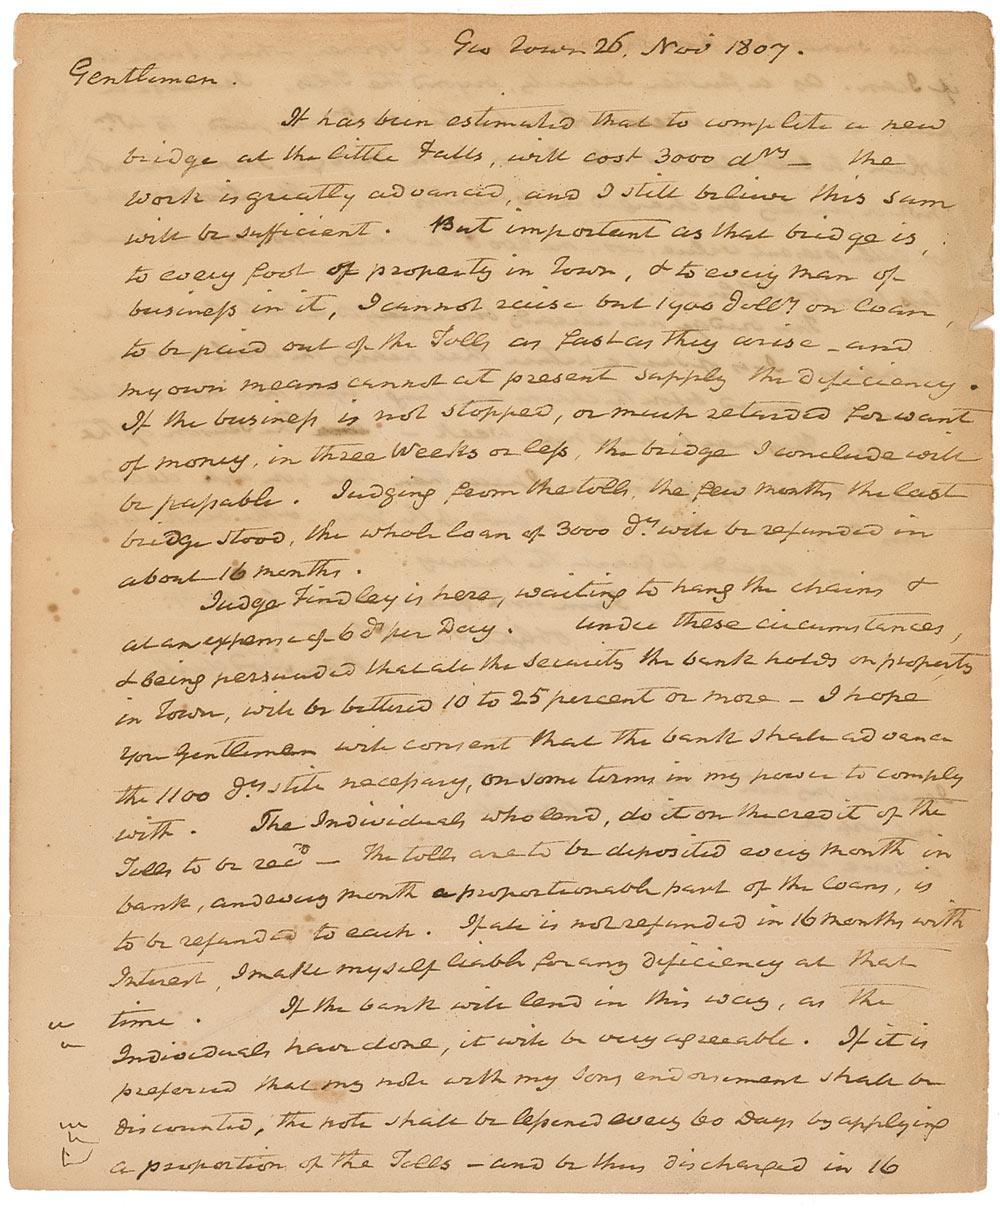 Geo Town 26, Nov 1807.
Gentlemen.
It has been estimated that to complete a new
bridge at the little Falls, will cost 3000 dllrs — the
work is greatly advanced, and I still believe this sum
will be sufficient. But important as that bridge is,
to every foot of property in Town, & to every man of
business in it, I cannot raise but 1900 Dollrs on loan,
to be paid out of the Tolls as fast as they arise — and
my own means cannot at present supply the deficiency.
If the business is not stopped, or much retarded for want
of money, in three Weeks or less, the bridge I conclude will
be passable. Judging from the tolls, the few months the last
bridge stood, the whole loan of 3000 Drs will be refunded in
about 16 months.
Judge Findley is here, waiting to hang the chains &
at an expense of 6 drs per Day. Under these circumstances,
& being persuaded that all the security the bank holds on property
in Town, will be bettered 10 to 25 percent or more — I hope
you Gentlemen will consent that the bank shall advance
the 1100 Drs still necessary, on some terms in my power to comply
with. The Individuals who lend, do it on the credit of the
Tolls to be recd — the tolls are to be deposited every month in
bank, and every month a proportionable part of the loans, is
to be refunded to each. If all is not refunded in 16 months with
Interest, I make myself liable for any deficiency at that
time. If the bank will lend in this way, as the
Individuals have done, it will be very agreeable. If it is
preferred that my note with my sons endorsement shall be
discounted, the note shall be lessened every 60 Days by applying
a proportion of the Tolls — and be thus discharged in 16